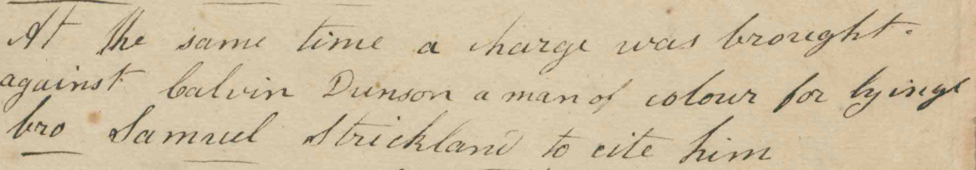 At the same time a charge was brought
against Calvin Dunson a man of colour for lyinge
bro Samuel Strickland to cite him